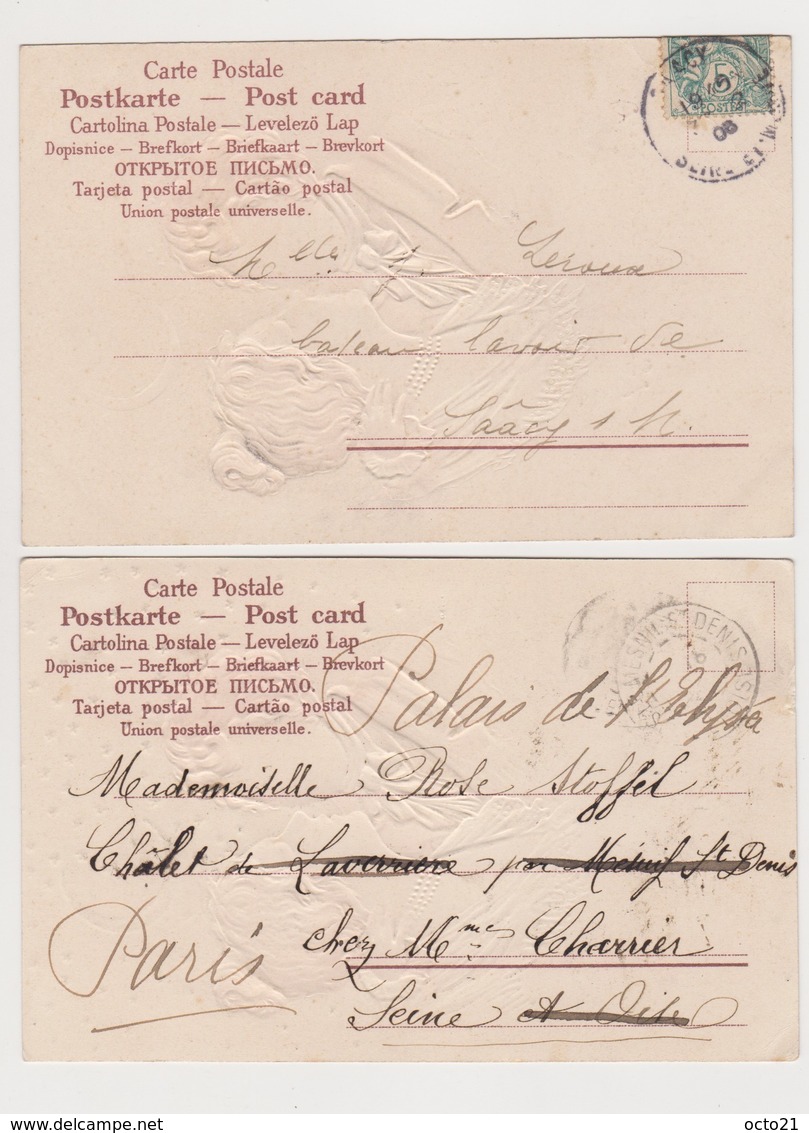 Carte Postale
Postkarte — Post card
Cartolina Postale — Levelezö Lap
Dopisnice — Brefkort — Briefkaart — Brevkort
ОТКРЫТОЕ ПИСЬМО.
Tarjeta postal — Cartão postal
Union postale universelle.
5
POSTES
08
Melle Leroux
bateau lavoir de
Saâcy s M.
Carte Postale
Postkarte — Post card
Cartolina Postale — Levelezö Lap
Dopisnice — Brefkort — Briefkaart — Brevkort
ОТКРЫТОЕ ПИСЬМО.
Tarjeta postal — Cartão postal
Union postale universelle.
ST DENIS
Palais de l'Elysée
Mademoiselle Rose Stoffel
Châlet de Laverrière par Mesnil St Denis
chez Mme Charrier
Paris
Seine et Oise
www.delcampe.net
octo21